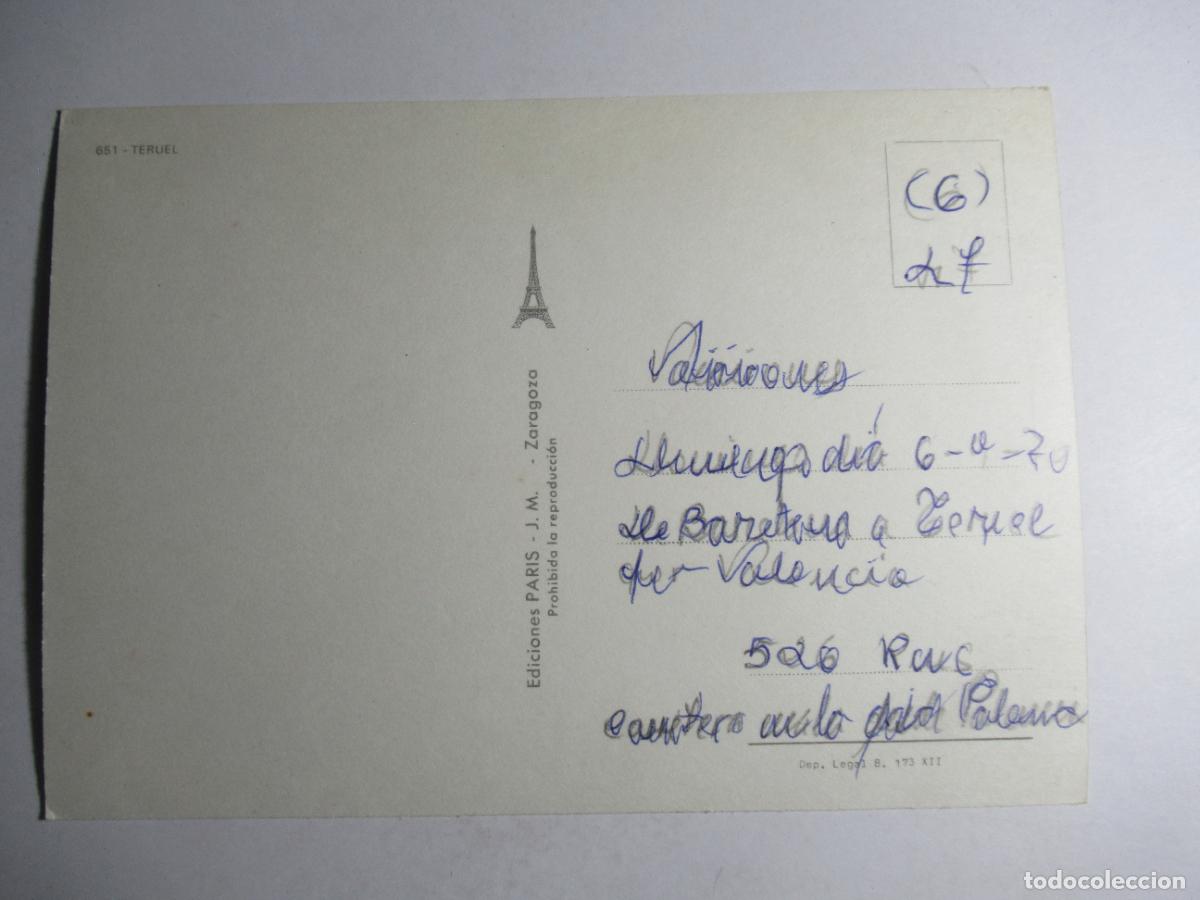 651 - TERUEL
(6)
27
Vacaciones
Domingo día 6-9-70
De Barcelona a Teruel
por Valencia
526 Kms
Carretera mala
Ediciones PARIS - J. M. - Zaragoza
Prohibida la reproducción
Dep. Legal B. 173 XII
todocoleccion